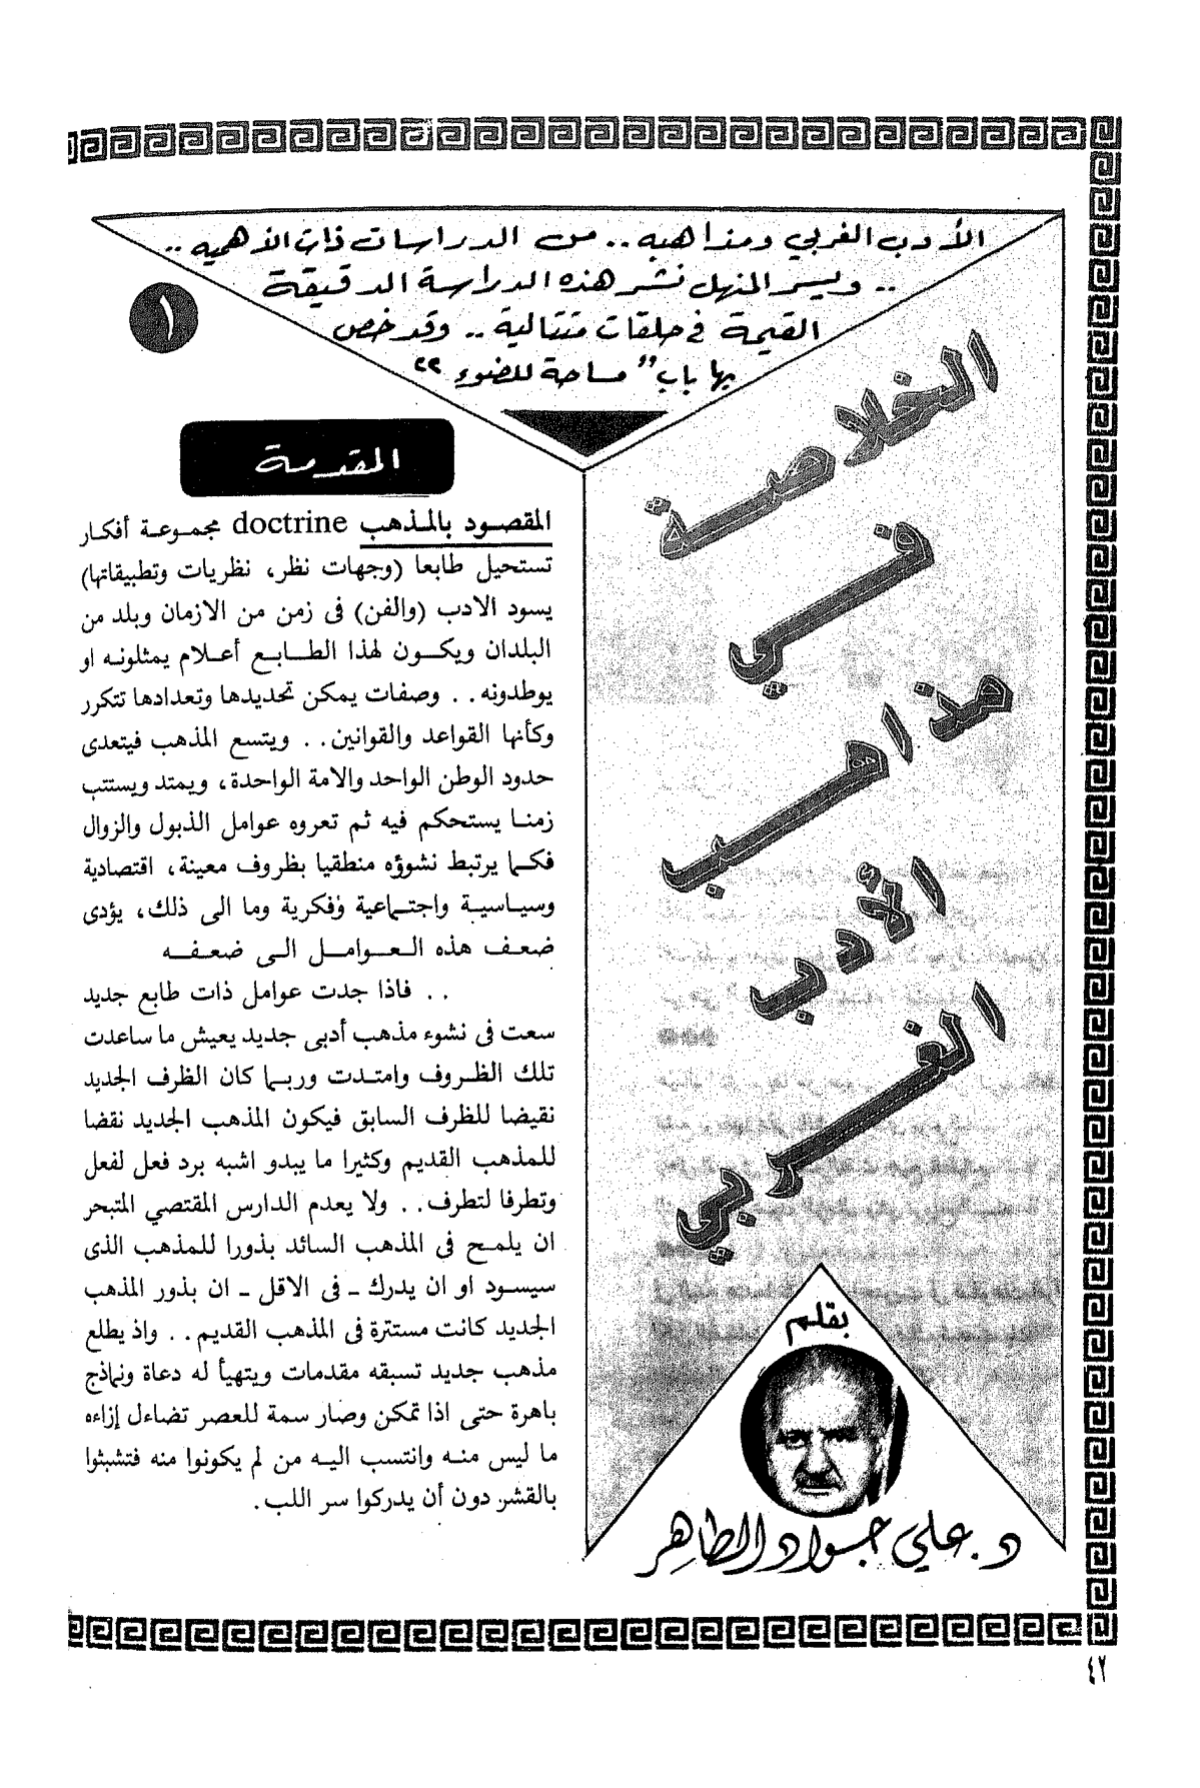 الأدب الغربي ومذاهبه .. من الدراسات ذات الأهميه ..
.. ويسر المنهل نشر هذه الدراسة الدقيقة
القيمة في حلقات متتالية .. وقد خص
بها باب "مساحة للضوء"
١
الخلاصة
في
مذاهب
الأدب
الغربي
بقلم
د. علي جواد الطاهر
المقدمة
المقصود بالمذهب doctrine مجموعة أفكار
تستحيل طابعا (وجهات نظر، نظريات وتطبيقاتها)
يسود الادب (والفن) فى زمن من الازمان وبلد من
البلدان ويكون لهذا الطابع أعلام يمثلونه او
يوطدونه . . وصفات يمكن تحديدها وتعدادها تتكرر
وكأنها القواعد والقوانين . . ويتسع المذهب فيتعدى
حدود الوطن الواحد والامة الواحدة، ويمتد ويستتب
زمنا يستحكم فيه ثم تعروه عوامل الذبول والزوال
فكما يرتبط نشوؤه منطقيا بظروف معينة، اقتصادية
وسياسية واجتماعية وفكرية وما الى ذلك، يؤدى
ضعف هذه العوامل الى ضعفه
. . فاذا جدت عوامل ذات طابع جديد
سعت فى نشوء مذهب أدبى جديد يعيش ما ساعدت
تلك الظروف وامتدت وربما كان الظرف الجديد
نقيضا للظرف السابق فيكون المذهب الجديد نقضا
للمذهب القديم وكثيرا ما يبدو اشبه برد فعل لفعل
وتطرفا لتطرف . . ولا يعدم الدارس المقتصي المتبحر
ان يلمح فى المذهب السائد بذورا للمذهب الذى
سيسود او ان يدرك ـ فى الاقل ـ ان بذور المذهب
الجديد كانت مستترة فى المذهب القديم . . واذ يطلع
مذهب جديد تسبقه مقدمات ويتهيأ له دعاة ونماذج
باهرة حتى اذا تمكن وصار سمة للعصر تضاءل إزاءه
ما ليس منه وانتسب اليه من لم يكونوا منه فتشبثوا
بالقشر دون أن يدركوا سر اللب .
٤٢